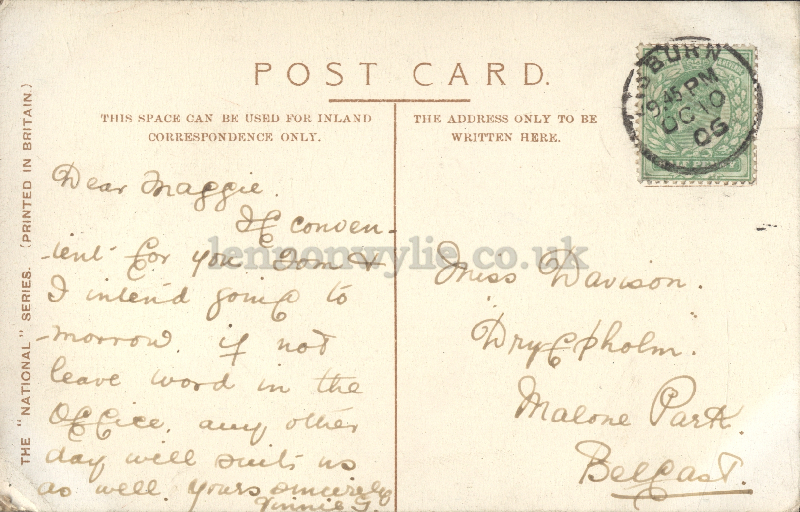 POST CARD.
THIS SPACE CAN BE USED FOR INLAND
CORRESPONDENCE ONLY.
THE ADDRESS ONLY TO BE
WRITTEN HERE.
THE "NATIONAL" SERIES. (PRINTED IN BRITAIN.)
BURN
9.45 PM
OC 10
06
Dear Maggie.
If conven-
-ient for you Tom &
I intend going to
-morrow. if not
leave word in the
Office. any other
day will suit us
as well. Yours sincerely
Miss Davison.
Malone Park.
Belfast.
lennonwylie.co.uk